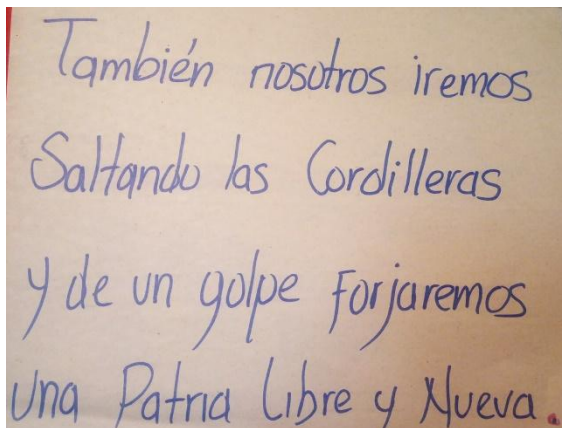 También nosotros iremos
Saltando las Cordilleras
y de un golpe forjaremos
una Patria Libre y Nueva.